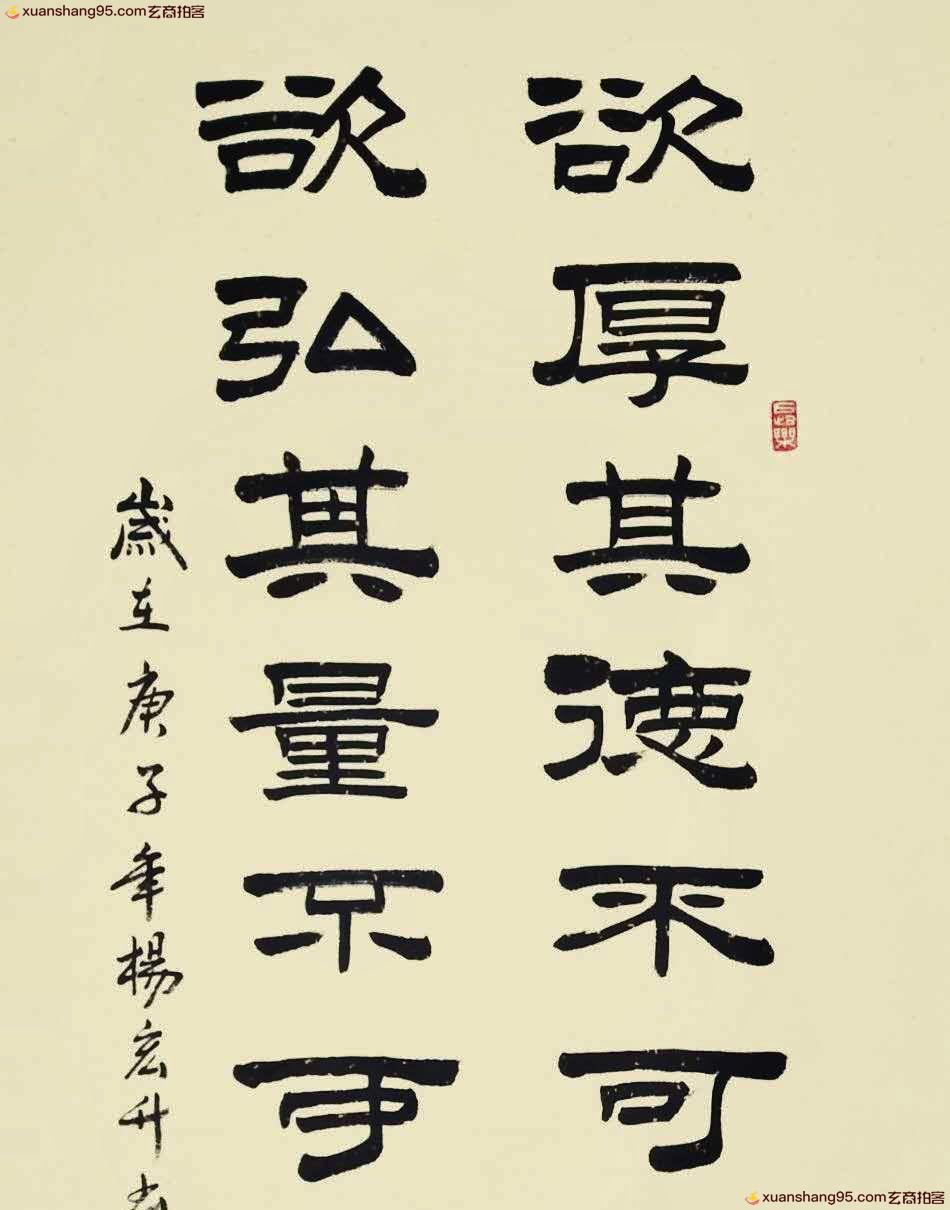 xuanshang95.com玄商拍客
欲厚其德不可
欲弘其量不可
歲在庚子年楊宏升書
xuanshang95.com玄商拍客